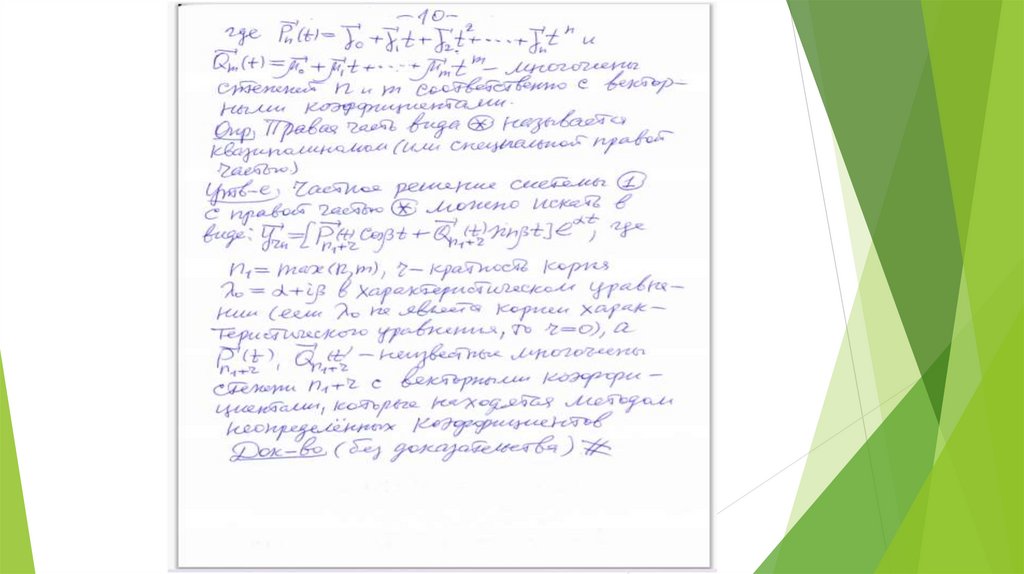 –10–
где P⃗ₙ(t)=γ⃗₀+γ⃗₁t+γ⃗₂t²+⋯+γ⃗ₙtⁿ и
Q⃗ₘ(t)=μ⃗₀+μ⃗₁t+⋯+μ⃗ₘtᵐ – многочлены
степеней n и m соответственно с вектор-
ными коэффициентами.
Опр. Правая часть вида ⊛ называется
квазиполиномом (или специальной правой
частью)
Утв-е. Частное решение системы ①
с правой частью ⊛ можно искать в
виде: y⃗чн=[P⃗ₙ₁₊ᵣ(t)cosβt+Q⃗ₙ₁₊ᵣ(t)sinβt]e^αt, где
n₁=max(n,m), r – кратность корня
λ₀=α+iβ в характеристическом уравне-
нии (если λ₀ не является корнем харак-
теристического уравнения, то r=0), а
P⃗ₙ₁₊ᵣ(t), Q⃗ₙ₁₊ᵣ(t) – неизвестные многочлены
степени n₁+r с векторными коэффи-
циентами, которые находятся методом
неопределённых коэффициентов
Док-во (без доказательства) #